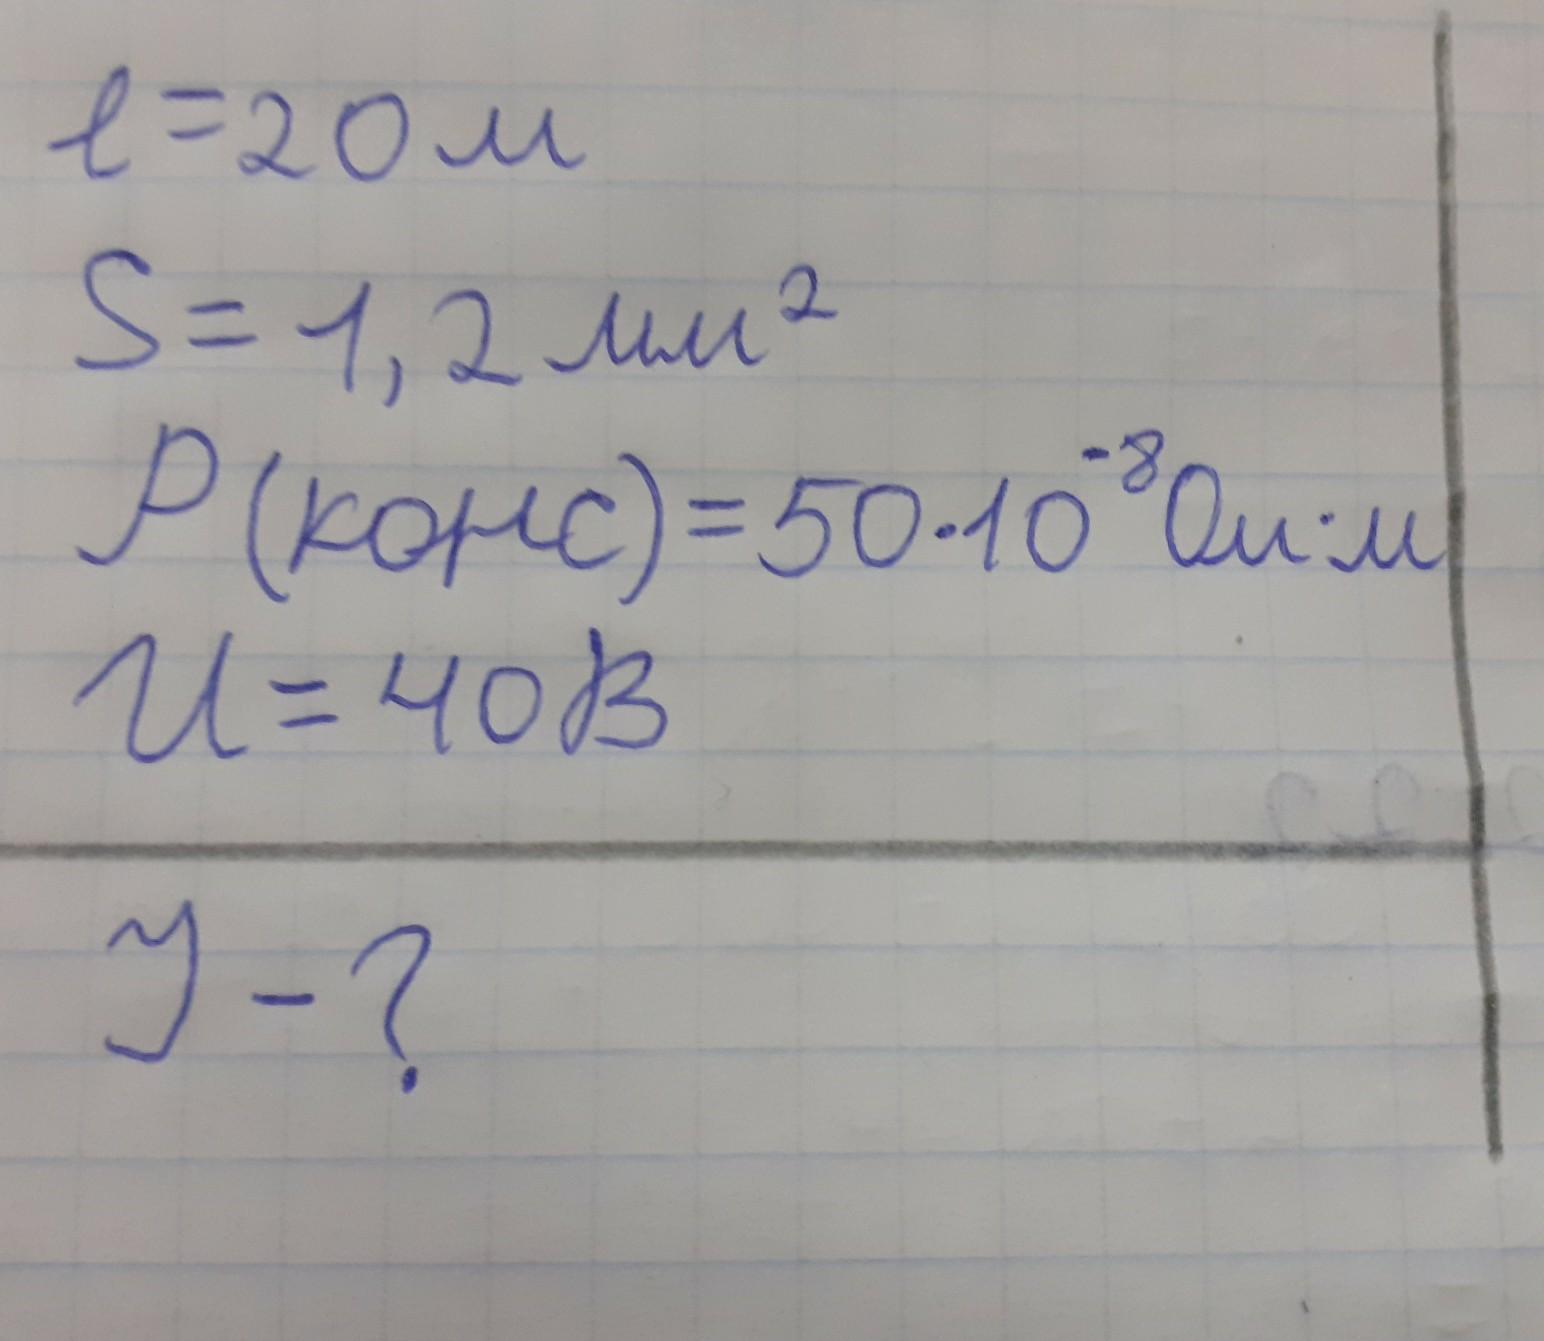 l=20м
S=1,2мм²
ρ(конс)=50·10⁻⁸Ом·м
U=40В
I-?